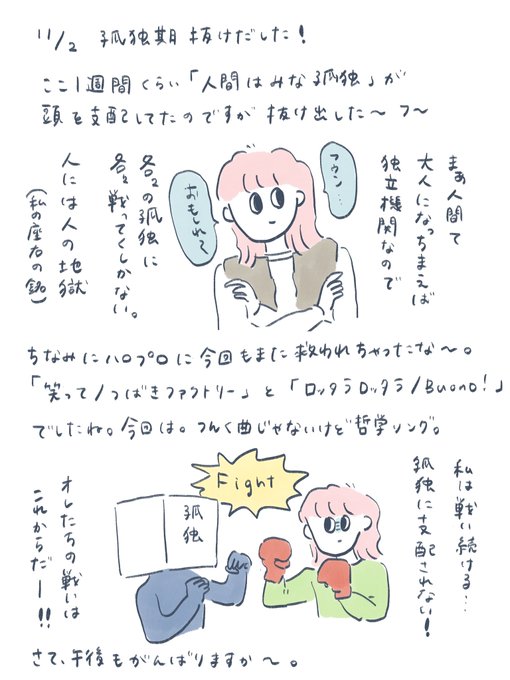 11/2 孤独期 抜けだした!
ここ1週間くらい「人間はみな孤独」が
頭を支配してたのですが 抜け出した〜 フ〜
まあ人間て
大人になっちまえば
独立機関なので
フウン…
おもしれ〜
各々の孤独に
各々戦ってくしかない。
人には人の地獄
(私の座右の銘)
ちなみにハロプロに今回もまた救われちゃったな〜。
「笑って/つばきファクトリー」と「ロッタラロッタラ/Buono!」
でしたね。今回は。つんく曲じゃないけど哲学ソング。
私は戦い続ける…
孤独に支配されない!
Fight
孤独
オレたちの戦いは
これからだー!!
さて、午後もがんばりますか〜。